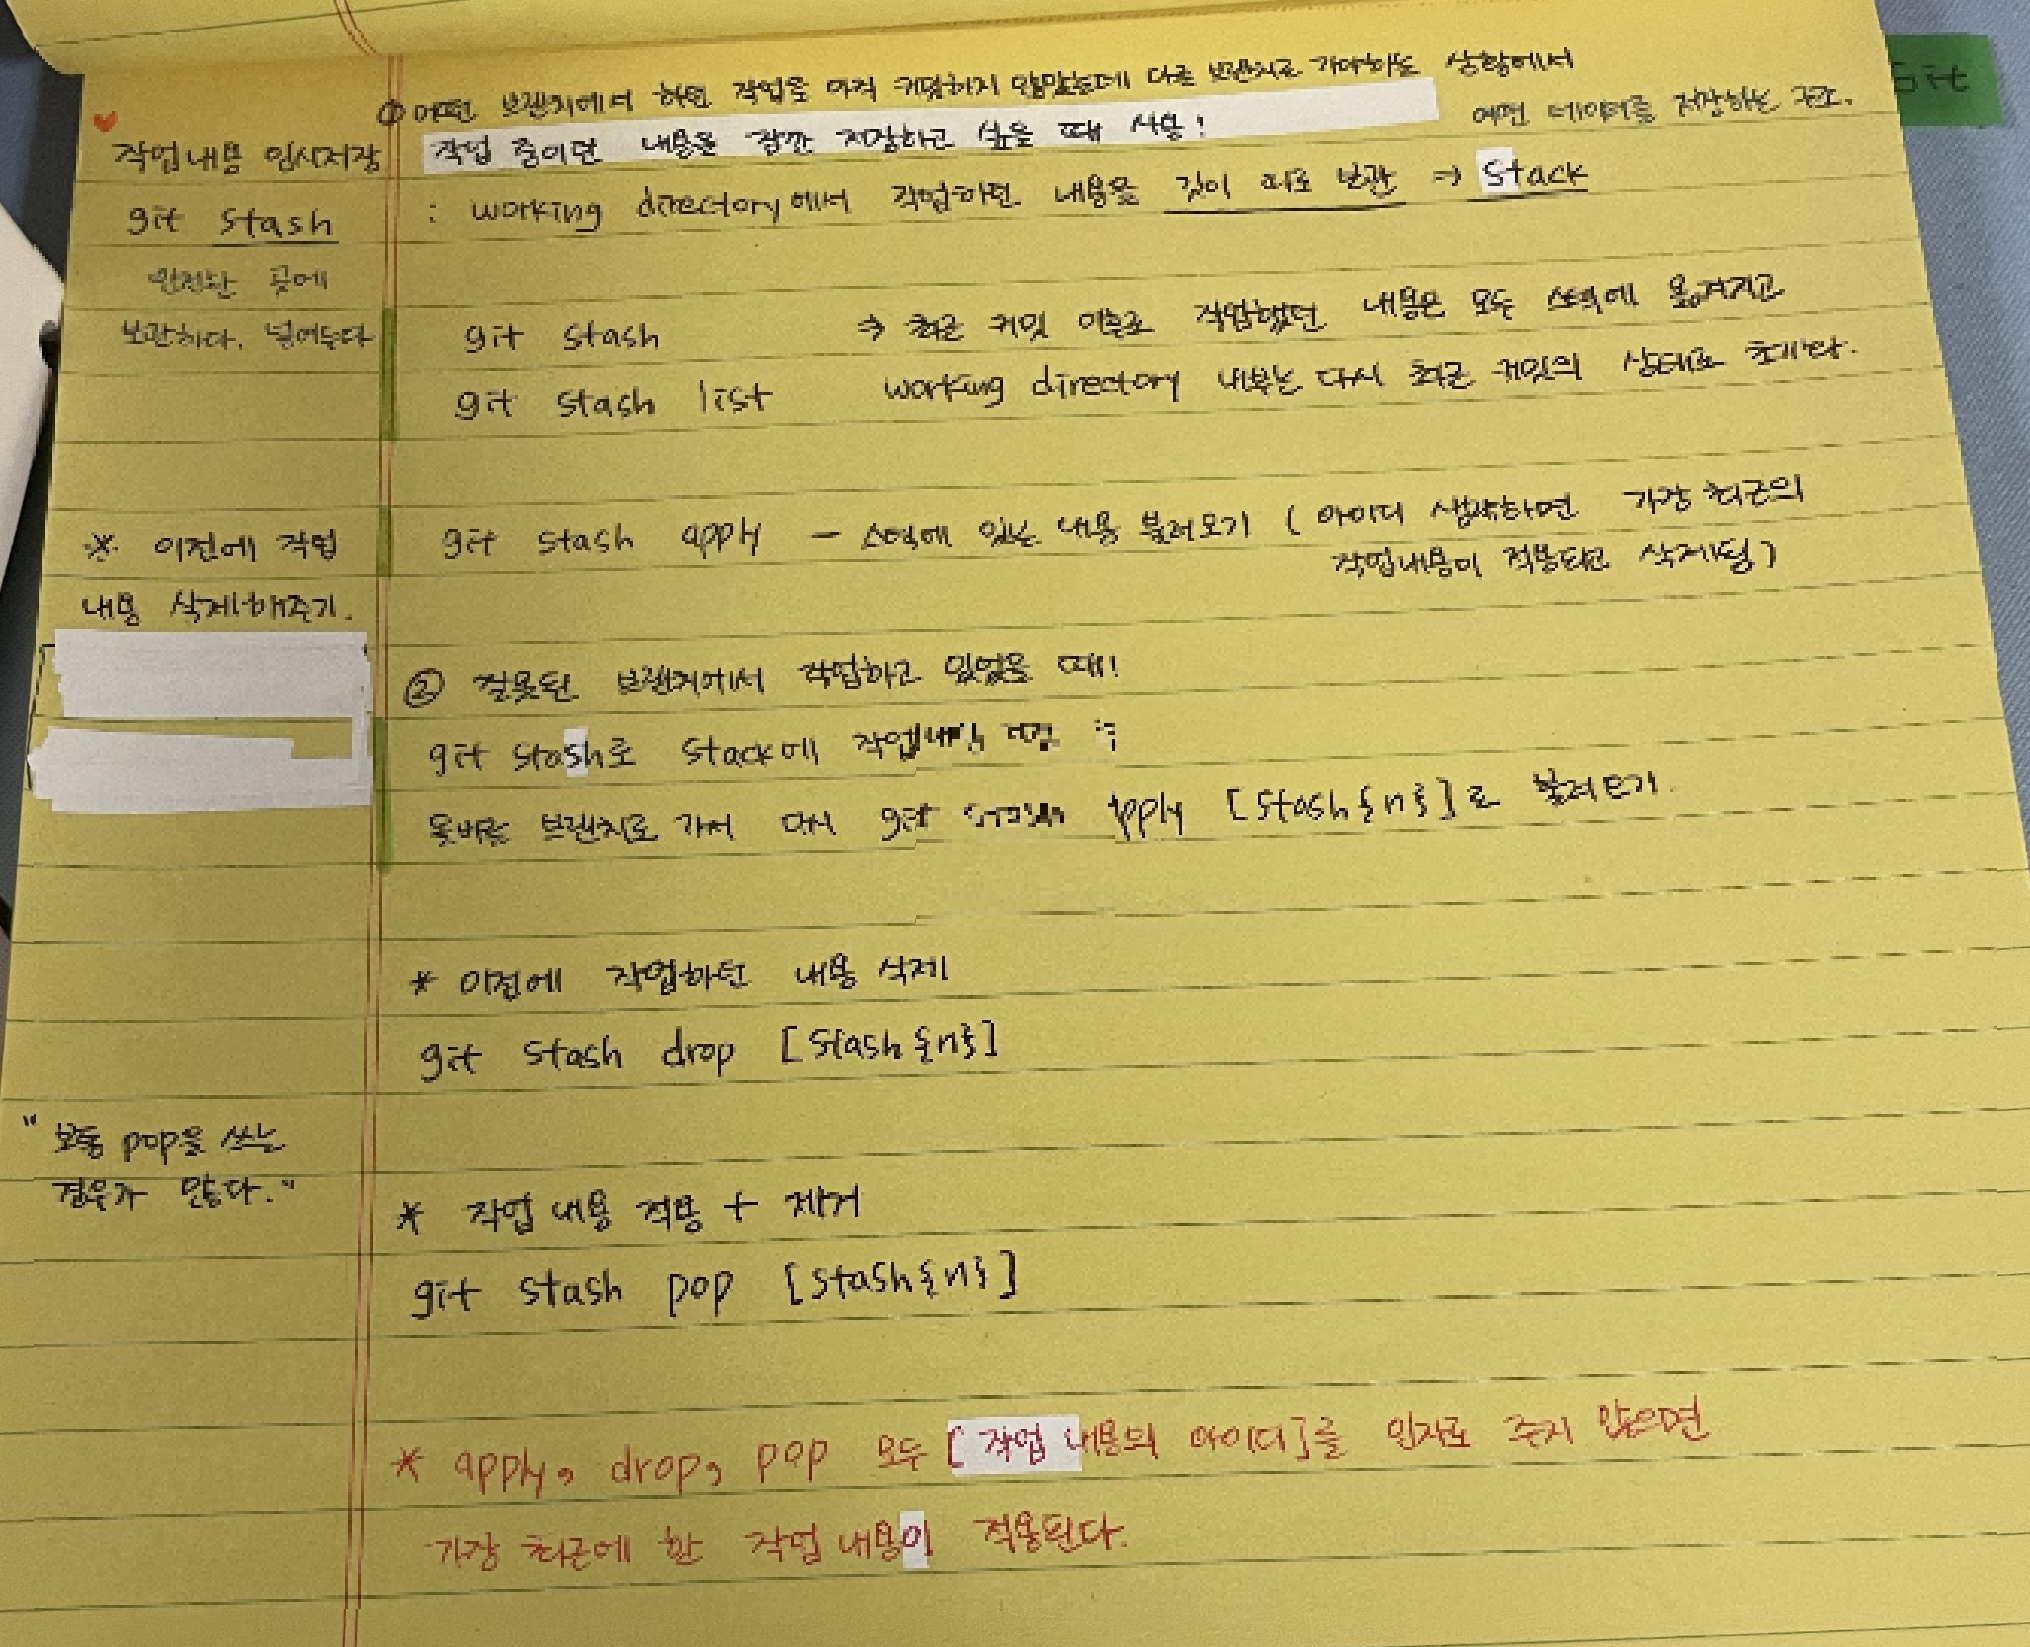 Git
① 어떤 브랜치에서 하던 작업을 아직 커밋하지 않았는데 다른 브랜치로 가야하는 상황에서
작업 중이던 내용을 잠깐 저장하고 싶을 때 사용!
어떤 데이터를 저장하는 구조.
작업내용 임시저장
git stash
안전한 곳에
보관하다. 넣어두다
: working directory에서 작업하던 내용을 깃이 따로 보관 ⇒ Stack
git stash ⇒ 최근 커밋 이후로 작업했던 내용은 모두 스택에 옮겨지고
git stash list working directory 내부는 다시 최근 커밋의 상태로 초기화.
※ 이전에 작업
내용 삭제해주기.
git stash apply – 스택에 있는 내용 불러오기 ( 아이디 생략하면 가장 최근의
작업내용이 적용되고 삭제됨)
② 잘못된 브랜치에서 작업하고 있었을 때!
git stash로 stack에 작업내용
올바른 브랜치로 가서 다시 git stash apply [stash{n}]로 불러오기.
* 이전에 작업하던 내용 삭제
git stash drop [stash{n}]
" 보통 pop을 쓰는
경우가 많다."
* 작업 내용 적용 + 제거
git stash pop [stash{n}]
* apply, drop, pop 모두 [작업 내용의 아이디]를 인자로 주지 않으면
가장 최근에 한 작업 내용이 적용된다.